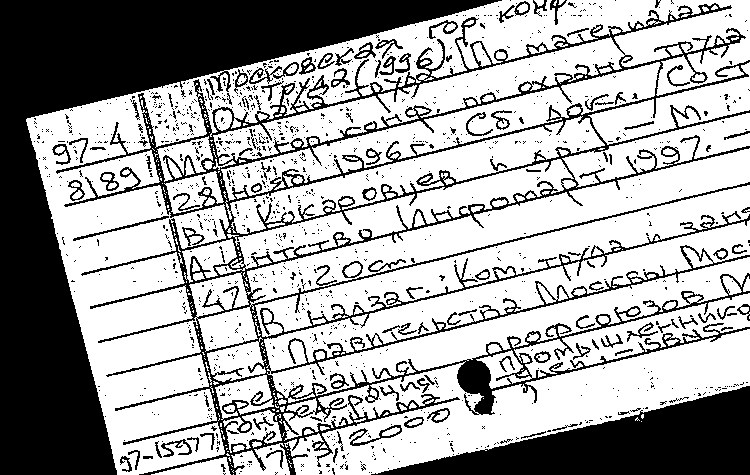 Московская гор. конф.
труда (1996).
97-4 Охрана труда: [По материалам
8189 Моск. гор. конф. по охране труда
28 нояб. 1996 г.: Сб. докл. / Сост.
В. К. Кокаровцев и др.]. — М.
Агентство "Инфомарт", 1997. —
47 с.; 20 см.
В надзаг.: Ком. труда и заня
сти Правительства Москвы, Моск
федерация профсоюзов, М
конфедерация промышленнико
предпринимат
97-15977 17-3) 2000